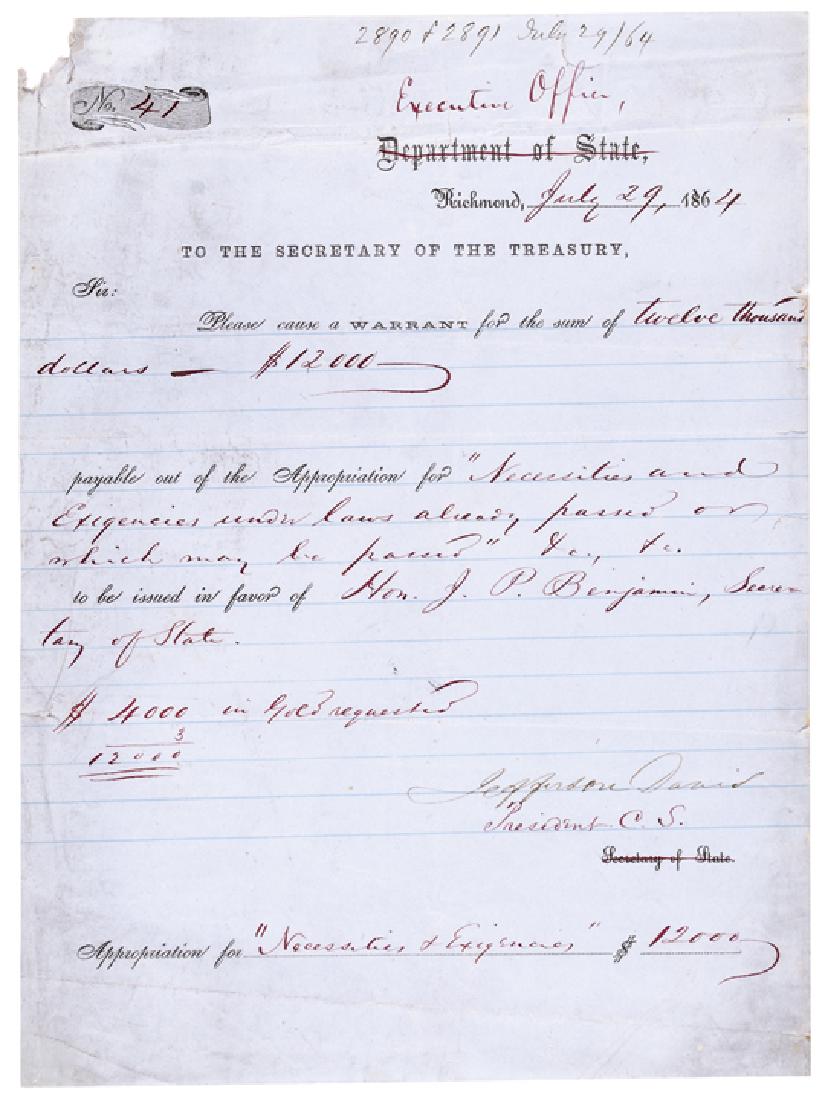 2890 & 2891 July 29/64
No. 41
Executive Office,
Department of State,
Richmond, July 29, 1864
TO THE SECRETARY OF THE TREASURY,
Sir:
Please cause a WARRANT for the sum of twelve thousand
dollars — $12000
payable out of the Appropriation for "Necessities and
Exigencies under laws already passed or
which may be passed" &c, &c.
to be issued in favor of Hon. J. P. Benjamin, Secre
tary of State.
$ 4000 in Gold requested
3
12000
Jefferson Davis
President C. S.
Secretary of State.
Appropriation for "Necessities & Exigencies" $ 12000